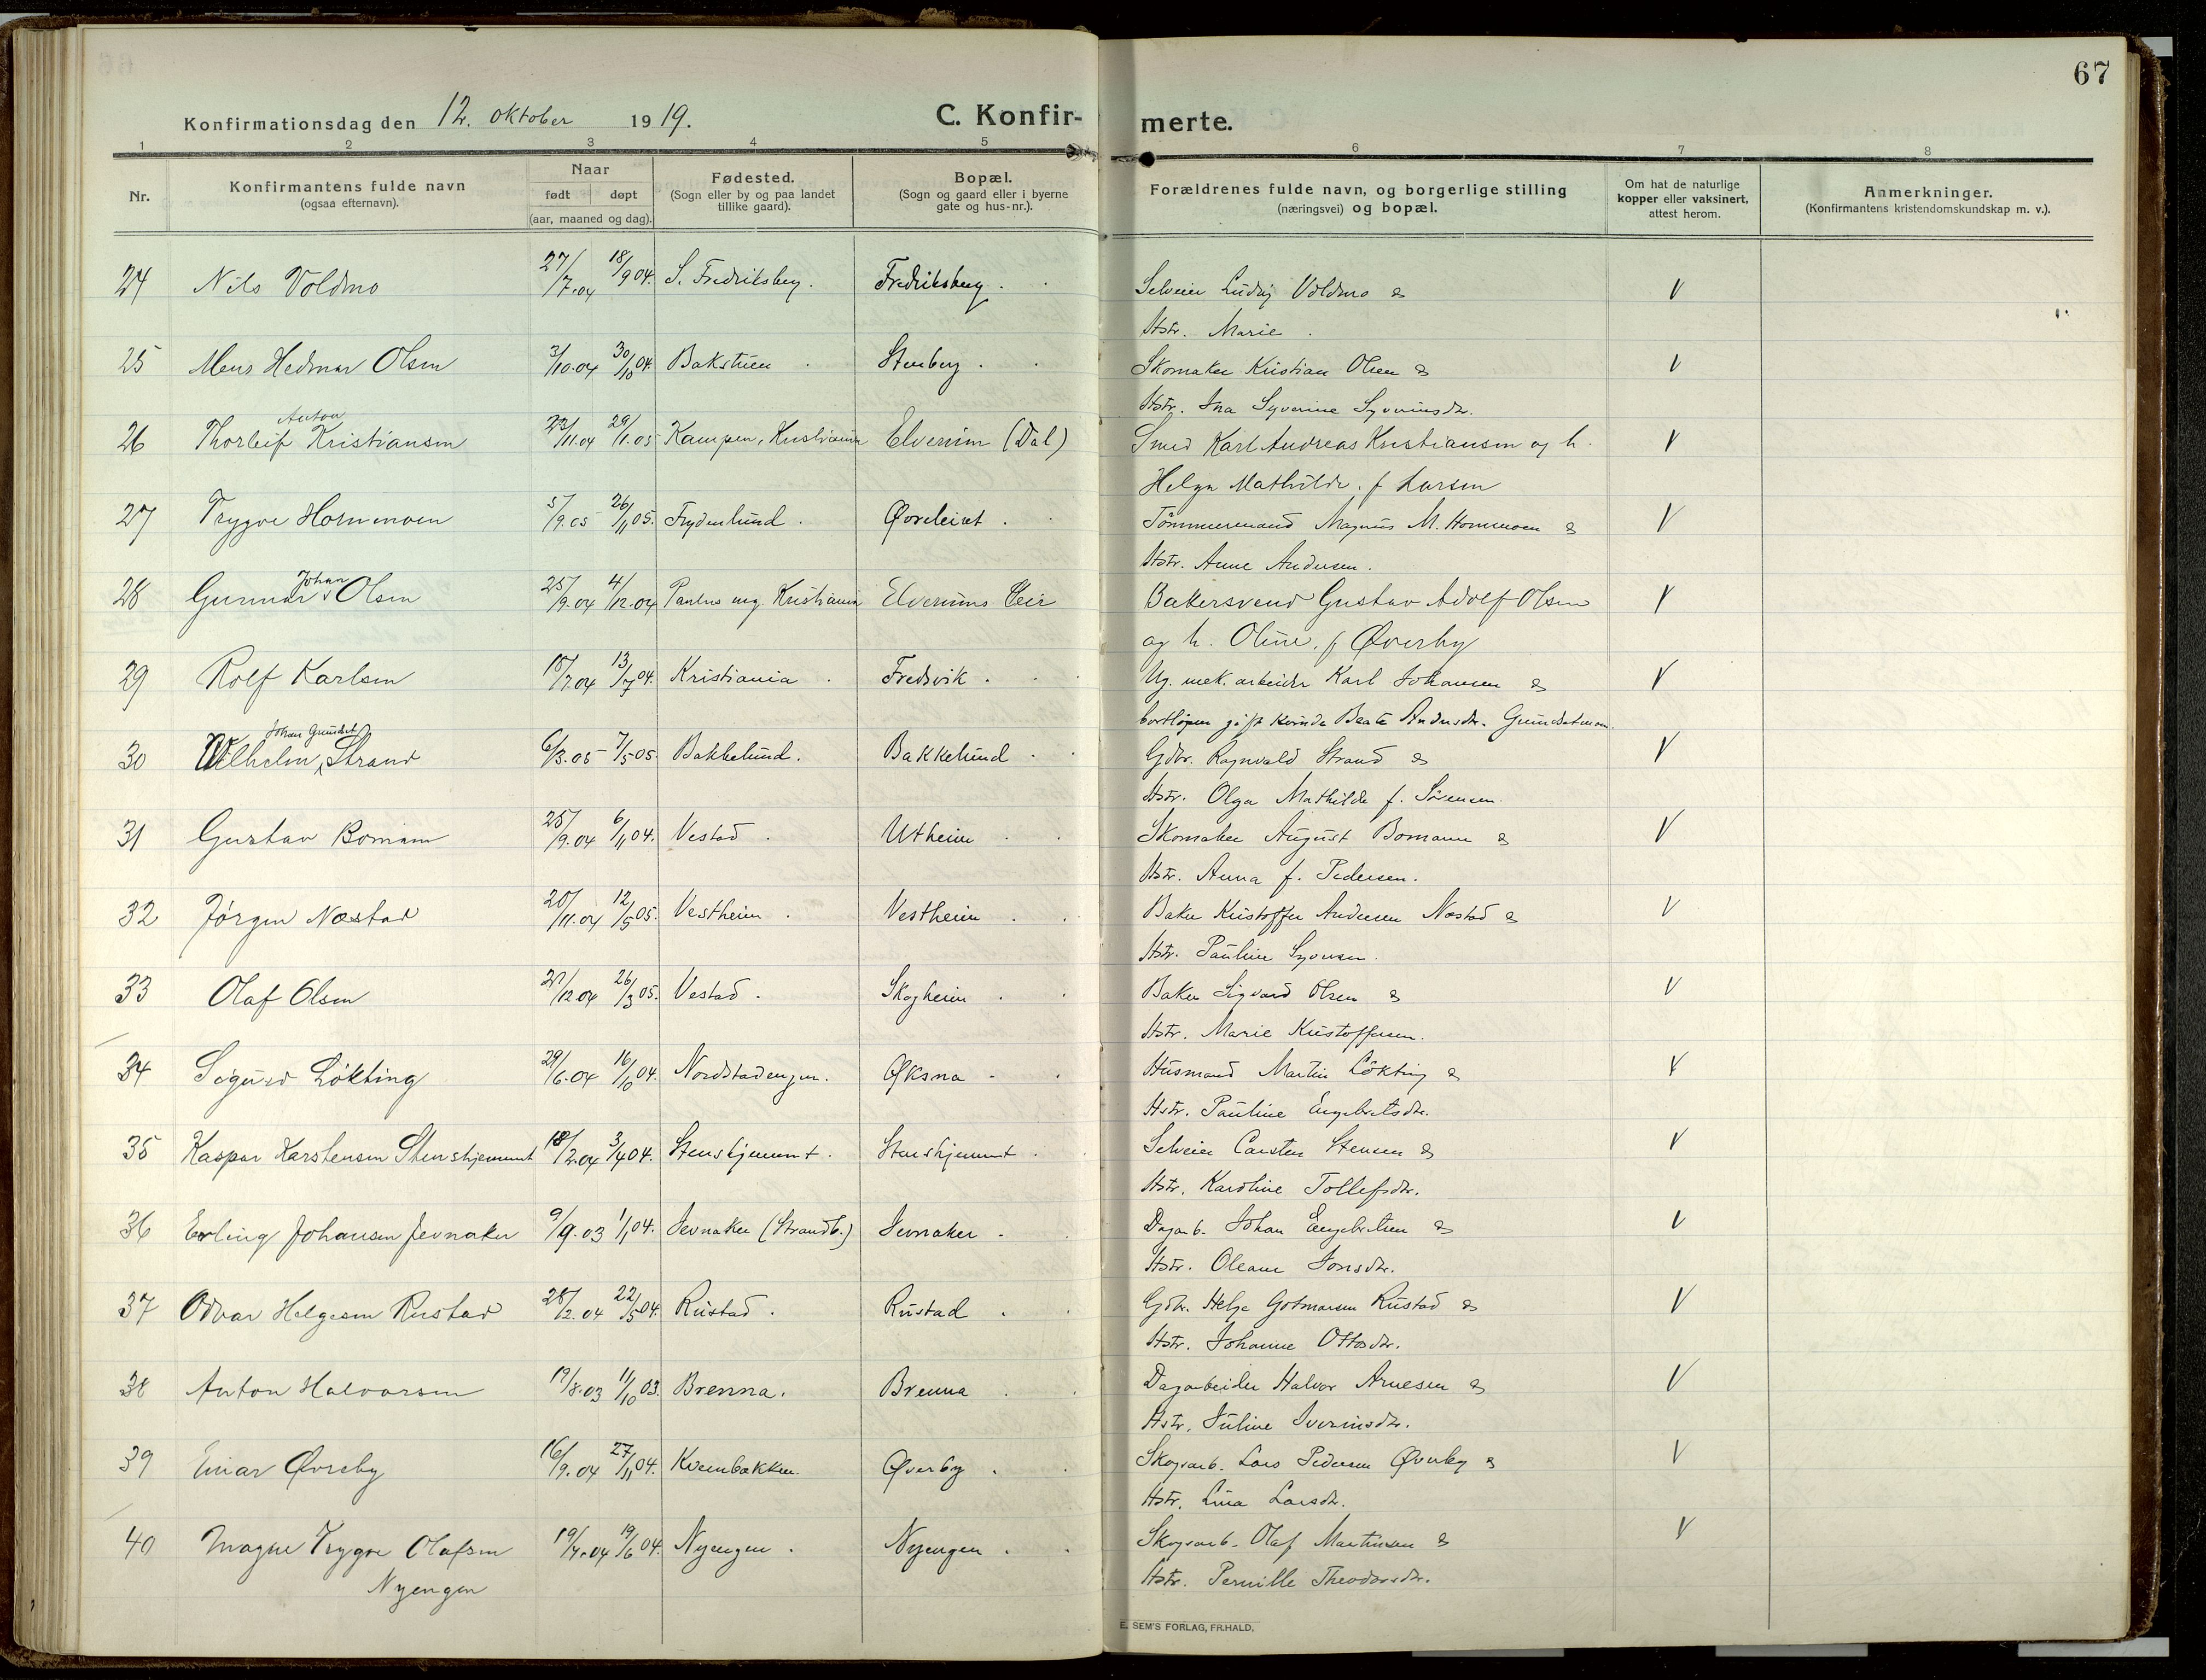 67
Konfirmationsdag den 12. oktober 1919.
C. Konfir- merte.
1 2 3 4 5 6 7 8
Nr.
Konfirmantens fulde navn
(ogsaa efternavn).
Naar
født døpt
(aar, maaned og dag).
Fødested.
(Sogn eller by og paa landet
tillike gaard).
Bopæl.
(Sogn og gaard eller i byerne
gate og hus-nr.).
Forældrenes fulde navn, og borgerlige stilling
(næringsvei) og bopæl.
Om hat de naturlige
kopper eller vaksinert,
attest herom.
Anmerkninger.
(Konfirmantens kristendomskundskap m. v.).
24 Nils Voldmo 27/7.04 18/9 04. S. Fredriksberg. Fredriksberg. Selveier Ludvig Voldmo & V
Hstr. Marie.
25 Hedmar Olsen 3/10.04 30/10 04. Bakstuen Stenberg. Skomaker Kristian Olsen & V
Hstr. Ina Syverine Syverinsdr.
Anton
26 Thorleif Kristiansen 23/11.04 29/1.05 Kampen, Kristiania Elverum (Dal) Smed Karl Andreas Kristiansen og h. V
Helga Mathilde, f. Larsen
27 Trygve Hommoen 5/9.05 26/11 05. Frydenlund. Øvreleiret. Tømmermand Magnus M. Hommoen & V
Hstr. Anne Andersen.
Johan
28 Gunnar Olsen 25/9.04 4/12.04 Paulus mg. Kristiania Elverums leir Bakersvend Gustav Adolf Olsen V
og h. Oline, f. Øverby
29 Rolf Karlsen 13/7 04. Kristiania. Fredsvik. Ug. mek. arbeider Karl Johansen & V
gift kvinde Beate Andersdr.
Johan Grundset
30 Wilhelm Strand 6/3.05 7/5 05. Bakkelund. Bakkelund Gdbr. Ragnvald Strand & V
Hstr. Olga Mathilde f. Sørensen.
31 Gustav Bomann 25/9.04 6/11 04. Vestad. Utheim Skomaker August Bomann & V
Hstr. Anna f. Pedersen.
32 Jørgen Næstad 20/11.04 12/5 05. Vestheim. Vestheim Baker Kristoffer Andersen Næstad & V
Hstr. Pauline Syversen.
33 Olaf Olsen 26/3 05. Vestad. Skogheim. Baker Sigvard Olsen & V
Hstr. Marie Kristoffersen.
34 Sigurd Løkting 29/6.04 16/10 04. Nordstadengen. Øksna Husmand Martin Løkting & V
Hstr. Pauline Engebretsdr.
35 Kaspar Karstensen Stenshjemmet 18/2.04 3/4 04. Stenshjemmet. Stenshjemmet. Selveier Carsten Stensen & V
Hstr. Karoline Tollefsdr.
36 Erling Johansen Jevnaker 9/9.03 1/1 04. Jevnaker (Strandb.) Jevnaker. Dagarb. Johan Engebretsen & V
Hstr. Oleane Jonsdr.
37 Odvar Helgesen Rustad 28/2.04 22/5 04. Rustad. Rustad. Gdbr. Helge Gotmarsen Rustad & V
Hstr. Johanne Ottosdr.
38 Anton Halvorsen 19/8.03 11/10 03. Brenna. Brenna Dagarbeider Halvor Arnesen & V
Hstr. Juline Iverinsdr.
39 Einar Øvreby 16/9.04 27/11 04. Kvernbakken. Øverby. Skogsarb. Lars Pedersen Øverby & V
Hstr. Lina Larsdr.
40 Magne Trygve Olafsen 19/4.04 19/6 04. Nyengen. Nyengen. Skogsarb. Olaf Martinsen & V
Nyengen Hstr. Pernille Theodorsdr.
E. SEM'S FORLAG, FR.HALD.